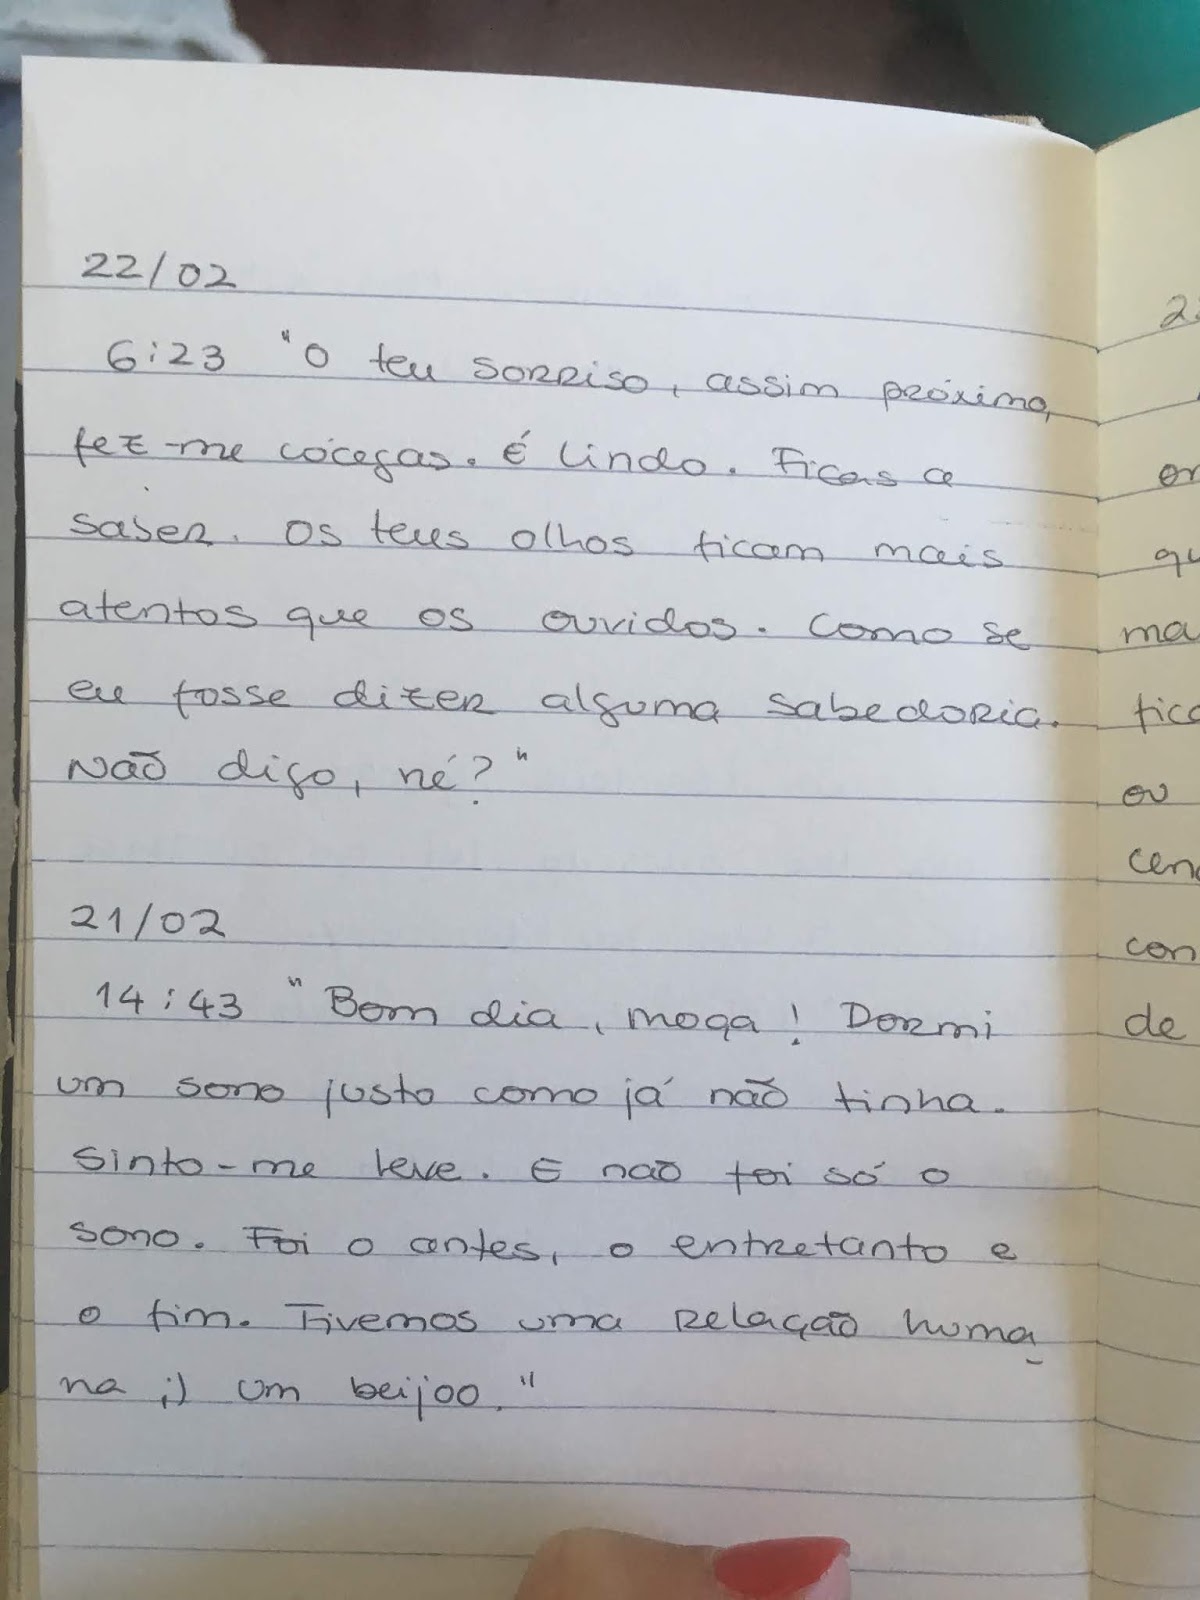 22/02
6:23 "O teu sorriso, assim próximo,
fez-me cócegas. É lindo. Ficas a
saber. Os teus olhos ficam mais
atentos que os ouvidos. Como se
eu fosse dizer alguma sabedoria.
Não digo, né?"
21/02
14:43 "Bom dia, moça! Dormi
um sono justo como já não tinha.
Sinto-me leve. E não foi só o
sono. Foi o antes, o entretanto e
o fim. Tivemos uma relação huma-
na ;) Um beijoo."
qu
ma
fica
ou
cen
con
de